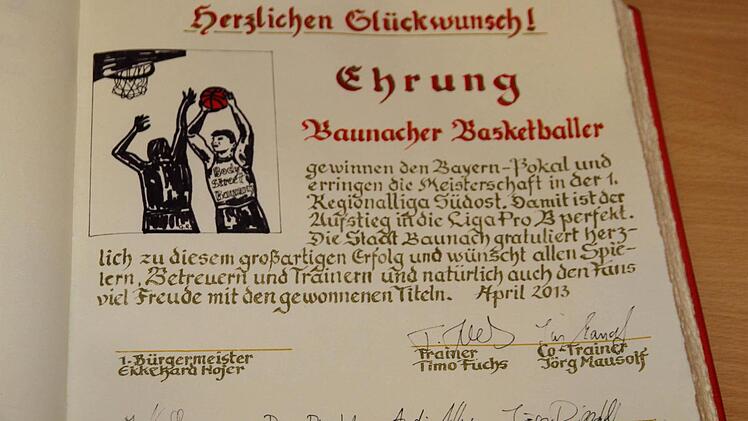 Herzlichen Glückwunsch!
Ehrung
Baunacher Basketballer
gewinnen den Bayern-Pokal und
erringen die Meisterschaft in der 1.
Regionalliga Südost. Damit ist der
Aufstieg in die Liga Pro B perfekt.
Die Stadt Baunach gratuliert herz-
lich zu diesem großartigen Erfolg und wünscht allen Spie-
lern, Betreuern und Trainern und natürlich auch den Fans
viel Freude mit den gewonnenen Titeln. April 2013
Body
Street
Baunach
1. Bürgermeister
Ekkehard Hojer
Trainer
Timo Fuchs
Co-Trainer
Jörg Mausolf